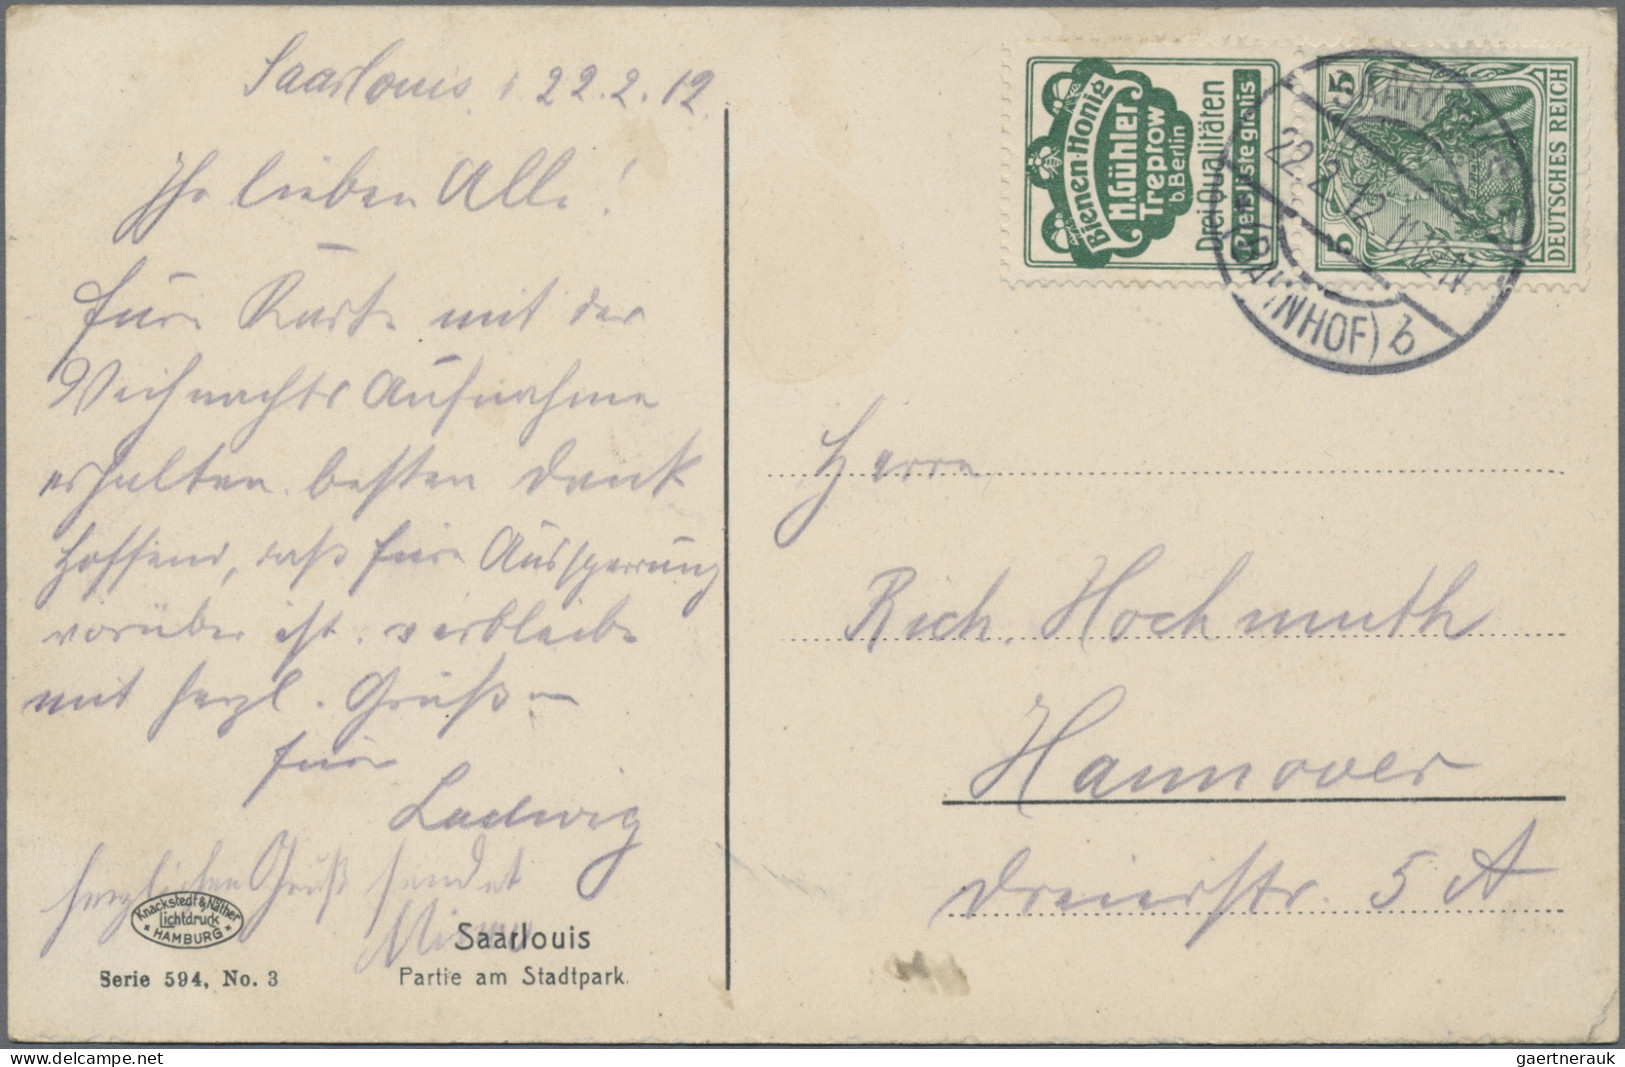 Saarlouis, 22.2.12
Ihr lieben Alle!
Eure Karte mit der
Weihnachts Aufnahme
erhalten. besten Dank
Hoffend, daß Eure Aussperrung
vorüber ist. verbleibe
mit herzl. Grüßen
Euer
Ludwig
herzlichen Gruß sendet
Knackstedt & Näther
Lichtdruck
* HAMBURG *
Serie 594, No. 3
Saarlouis
Partie am Stadtpark.
Bienen-Honig
H. Gühler
Treptow
b. Berlin
Drei Qualitäten
Preisliste gratis.
5 5
DEUTSCHES REICH
22.2.12. 11-12N
(BAHNHOF) b
Herrn
Rich. Hochmuth
Hannover
Dreierstr. 5 A
www.delcampe.net
gaertnerauk